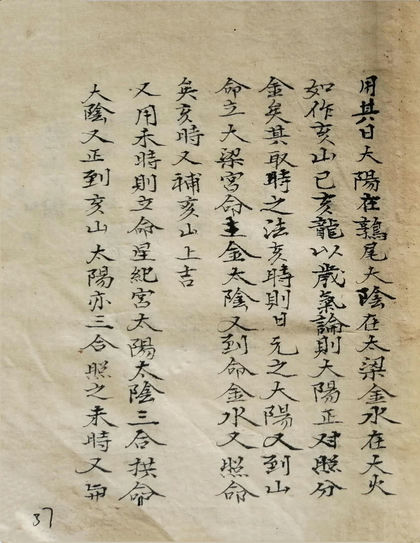 用其日太陽在鶉尾太陰在大梁金水在大火
如作亥山已亥龍以歲氣論則太陽正对照分
金矣其取時之法亥時則日元之大陽又到山
命立大梁宮命主金太陰又到命金水又照命
矣亥時又補亥山上吉
又用未時則立命星紀宮太陽太陰三合拱命
太陰又正到亥山太陽亦三合照之未時又
37